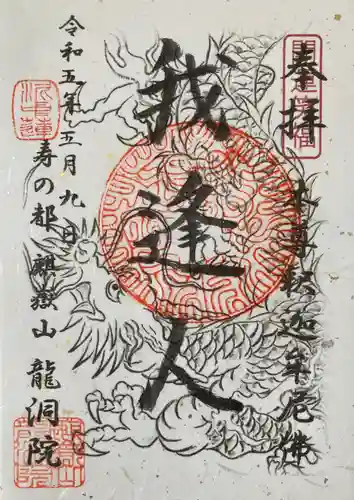 奉拝
本尊釈迦牟尼佛
我逢人
令和五年五月九日
寿の都 麒嶽山 龍洞院